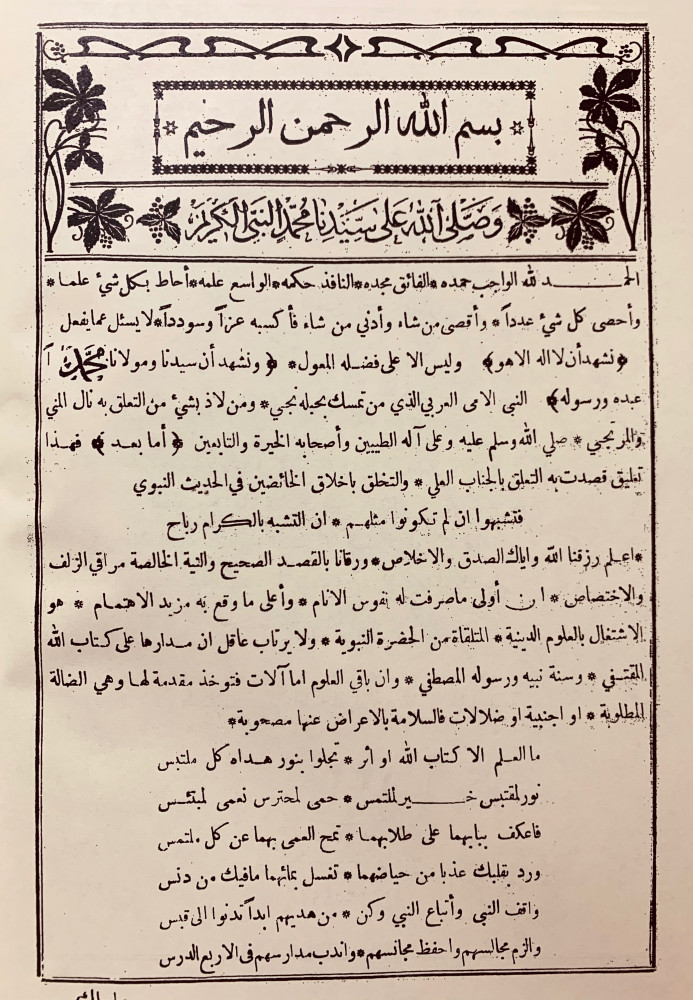 بسم الله الرحمن الرحيم
وَصَلَّى اللهُ عَلَى سَيِّدِنَا مُحَمَّدٍ النَّبِيِّ الْكَرِيْمِ
الحمـــد لله الواجب حمده * الفائق مجده * النافذ حكمه * الواسع علمه * أحاط بكل شئ علما *
وأحصى كل شئ عدداً * وأقصى من شاء وأدني من شاء فأكسبه عزاً وسودداً * لا يسئل عما يفعل
﴿ نشهد أن لا اله الا هو ﴾ وليس الا على فضله المعول * ﴿ ونشهد أن سيدنا ومولانا محمداً
عبده ورسوله ﴾ النبي الامى العربي الذي من تمسك بحبله نجي * ومن لاذ بشئ من التعلق به نال المني
والمرتجي * صلي الله وسلم عليه وعلى آله الطيبين وأصحابه الخيرة والتابعين ﴿ أما بعد ﴾ فهذا
تعليق قصدت به التعلق بالجناب العلي * والتخلق باخلاق الخائضين في الحديث النبوي
فتشبهوا ان لم تكونوا مثلهم * ان التشبه بالكرام رباح
* اعلم رزقنا الله واياك الصدق والاخلاص * ورقانا بالقصد الصحيح والنية الخالصة مراقي الزلف
والاختصاص * ان أولى ماصرفت له نفوس الانام * وأعلى ما وقع به مزيد الاهتمام * هو
الاشتغال بالعلوم الدينية * المتلقاة من الحضرة النبوية * ولا يرتاب عاقل ان مدارها على كتاب الله
المقتفي * وسنة نبيه ورسوله المصطفي * وان باقي العلوم اما آلات فتوخذ مقدمة لها وهي الضالة
المطلوبة * او اجنبية او ضلالات فالسلامة بالاعراض عنها مصحوبة *
ما العلم الا كتاب الله او اثر * تجلوا بنور هداه كل ملتبس
نور لمقتبس خـــير لملتمس * حمى لمحترس نعمى لمبتئس
فاعكف ببابهما على طلابهما * تمح العمى بهما عن كل ملتمس
ورد بقلبك عذبا من حياضهما * تغسل بمائهما مافيك من دنس
واقف النبي وأتباع النبي وكن * من هديهم ابداً تدنوا الى قبس
والزم مجالسهم واحفظ مجانسهم * واندب مدارسهم فى الاربع الدرس